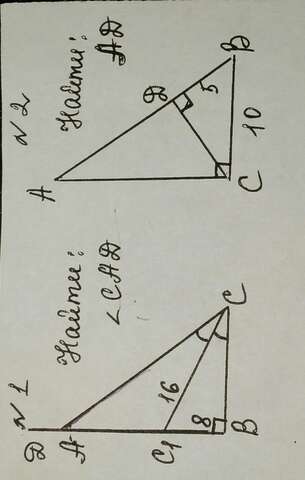 № 1
Найти:
<CAD
D
A
C1
B
C
16
8
№ 2
Найти:
AD
A
D
B
C
5
10